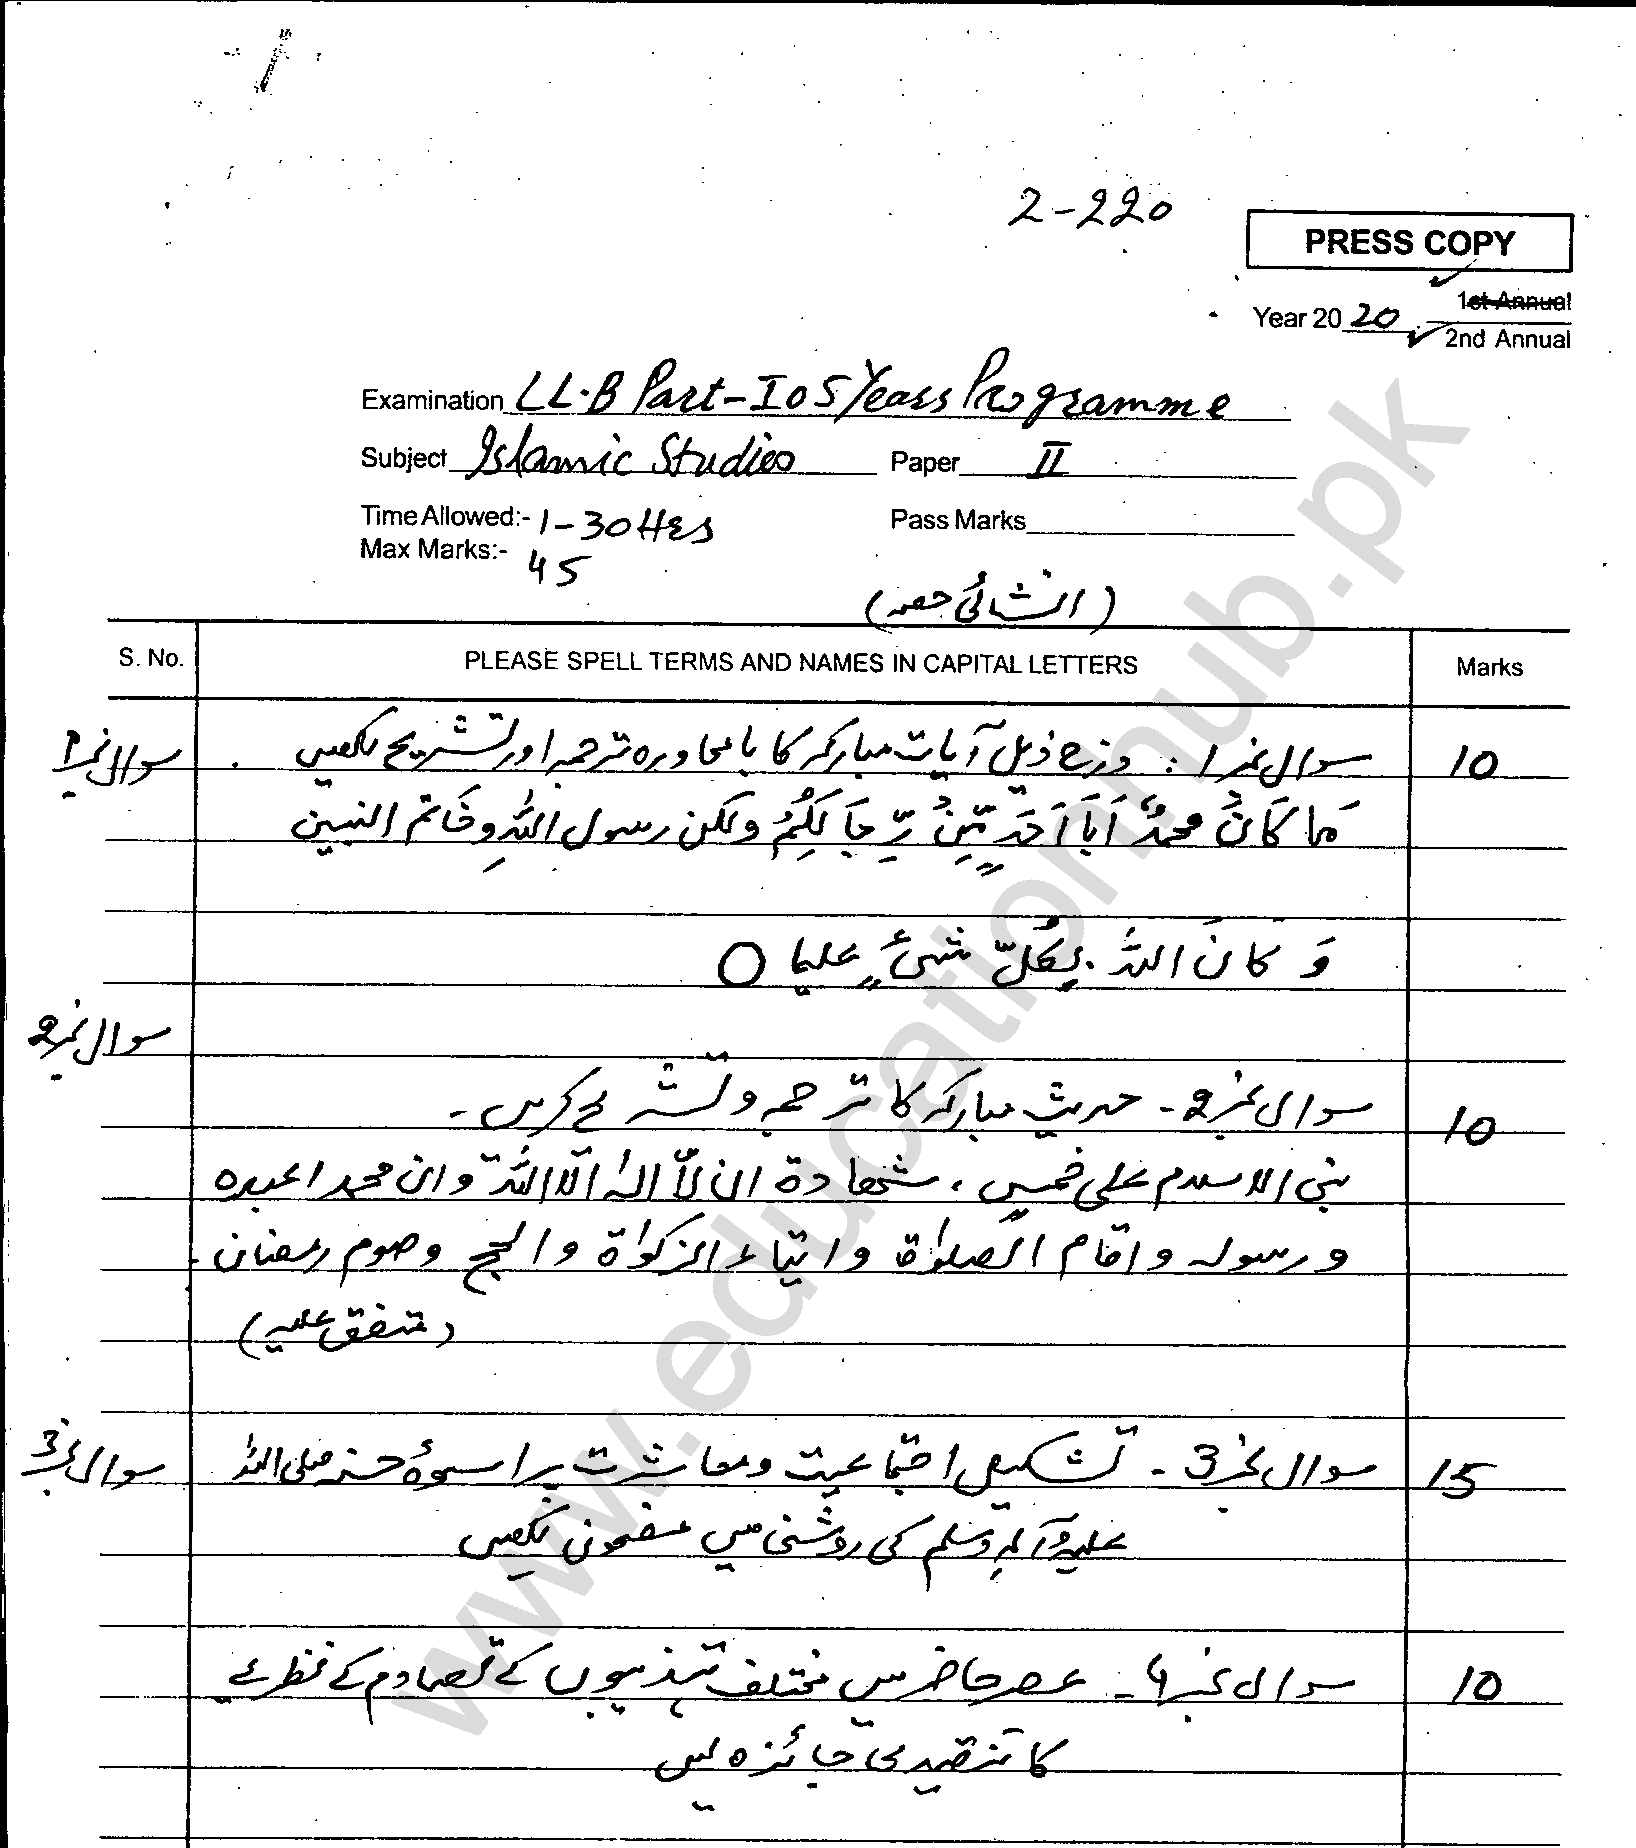 2-220
PRESS COPY
Year 2020 1st Annual
2nd Annual
Examination LL.B Part-I 05 Years Programme
Subject Islamic Studies Paper II
Time Allowed:- 1-30 Hrs Pass Marks
Max Marks:- 45
(انشائی حصہ)
S. No. PLEASE SPELL TERMS AND NAMES IN CAPITAL LETTERS Marks
سوال نمبر 1 سوال نمبر 1: درج ذیل آیات مبارکہ کا بامحاورہ ترجمہ اور تشریح لکھیں 10
مَا كَانَ محمدٌ اَبَا اَحَدٍ مِّنْ رِّجَالِكُمْ ولکن رسول اللهِ وخَاتم النبین
وَ كَانَ اللهُ بِكُلِّ شَیْءٍ علیما O
سوال نمبر 2
سوال نمبر 2 - حدیث مبارکہ کا ترجمہ و تشریح کریں - 10
بنی الاسلام علی خمسٍ، شھادة ان لاَّ الہٰ الّا اللهُ وان محمدا عبدہ
و رسولہ واقام الصلوٰة وایتاء الزکوٰة والحج وصوم رمضان -
(متفق علیہ)
سوال نمبر 3 سوال نمبر 3 - تشکیل اجتماعیت ومعاشرت پر اسوۂ حسنہ صلی اللہ 15
علیہ وآلہ وسلم کی روشنی میں مضمون لکھیں
سوال نمبر 4 - عصر حاضر میں مختلف تہذیبوں کے تصادم کے نظریے 10
کا تنقیدی جائزہ لیں
www.educationhub.pk